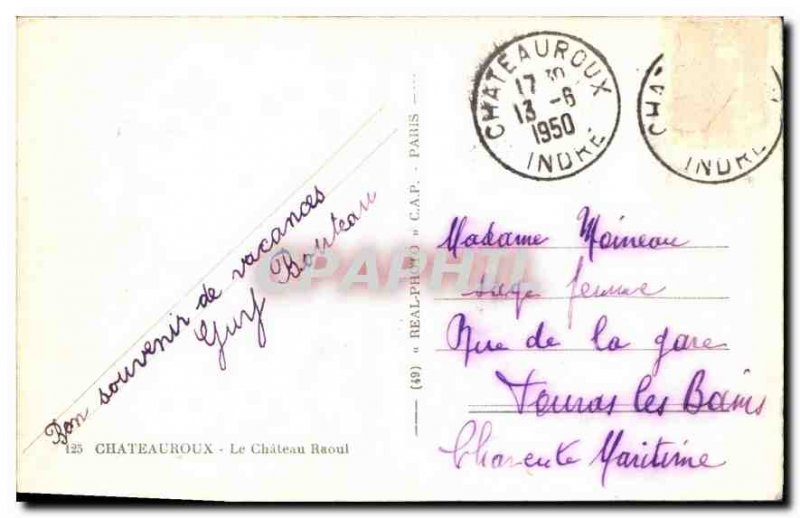 CHATEAUROUX
17 30
13 -6
1950
INDRE
CHA
INDRE
Bon souvenir de vacances
Guy Bouteau
(49) « REAL-PHOTO » C.A.P. - PARIS
Madame Moineau
sage femme
Rue de la gare
Fouras les Bains
Charente Maritime
CPAPHIL
125 CHATEAUROUX - Le Château Raoul